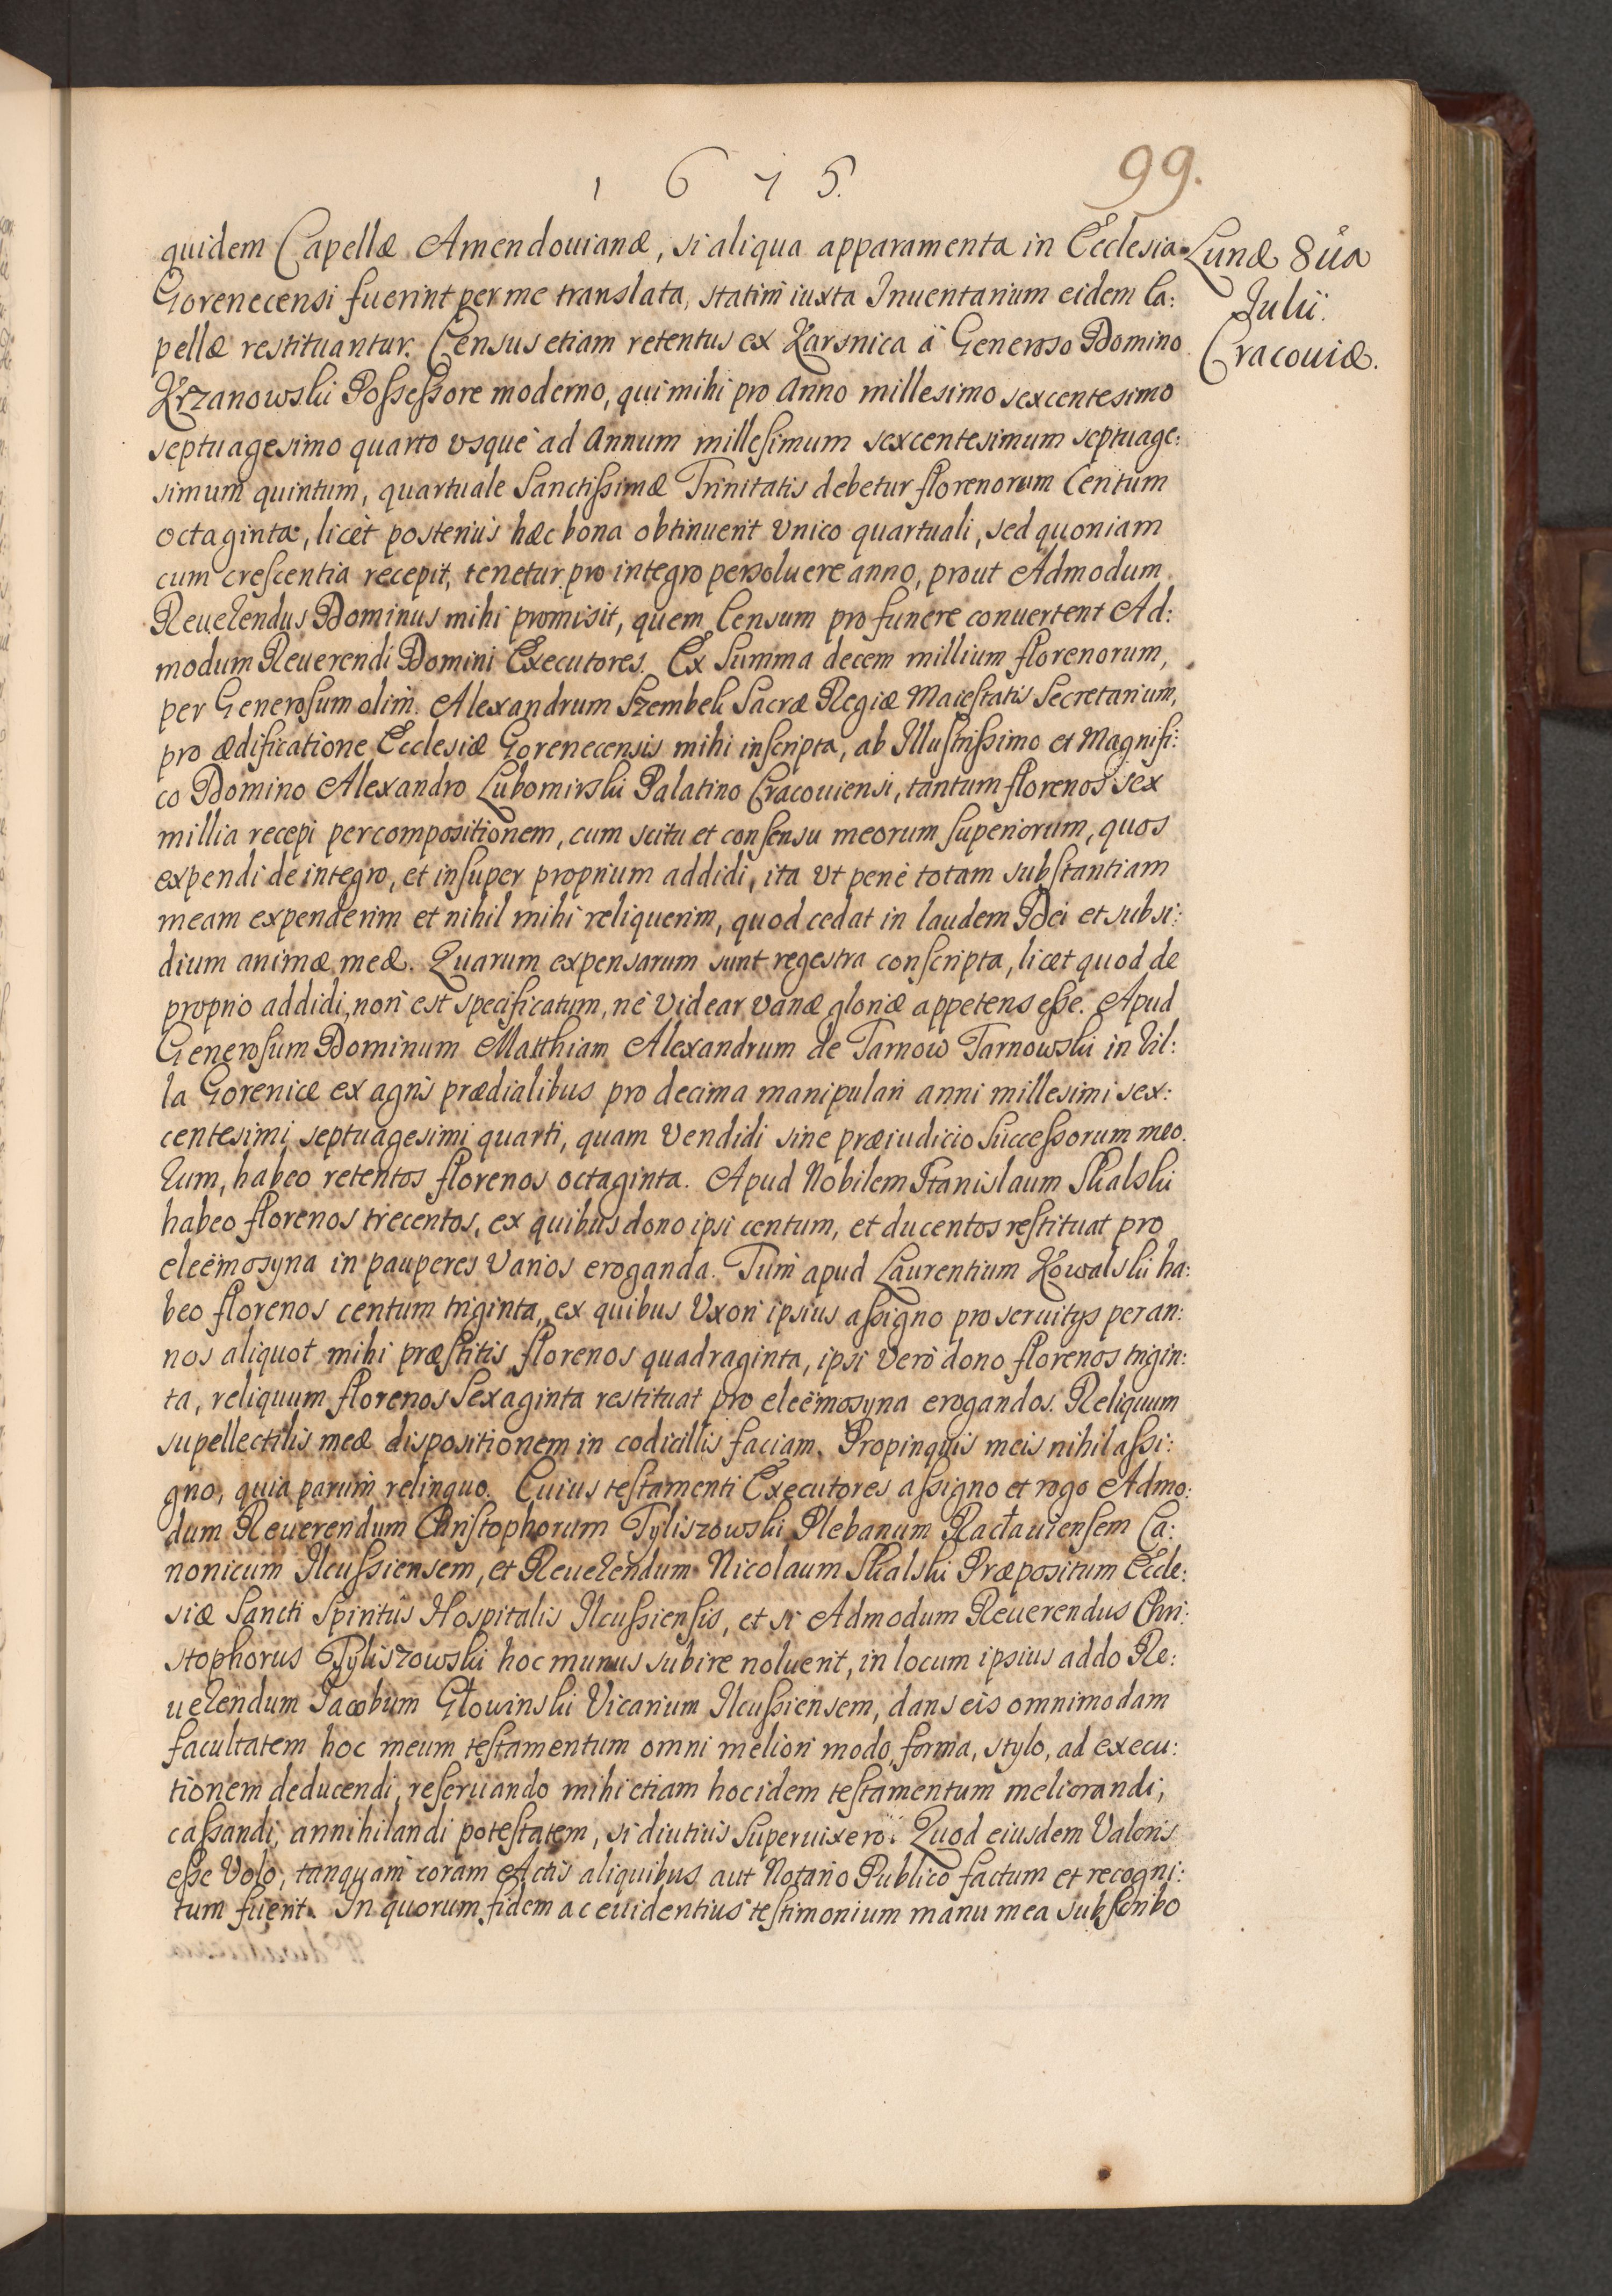 1675.
99.
quidem Capellæ Amendouianæ, si aliqua apparamenta in Ecclesia
Gorenecensi fuerint per me translata, statim iuxta Inuentarium eidem Ca:
pellæ restituantur. Census etiam retentus ex Karsnica á Generoso Domino
Krzanowski Possessore moderno, qui mihi pro Anno millesimo sexcentesimo
septuagesimo quarto vsque ad Annum millesimum sexcentesimum septuage:
simum quintum, quartuale Sanctissimæ Trinitatis debetur florenorum Centum
octaginta, licèt posteriùs hæc bona obtinuerit vnico quartuali, sed quoniam
cum crescentia recepit, tenetur pro integro persoluere anno, prout Admodum
Reuerendus Dominus mihi promisit, quem Censum pro funere conuertent Ad:
modum Reuerendi Domini Executores. Ex Summa decem millium florenorum,
per Generosum olim Alexandrum Szembek Sacræ Regiæ Maiestatis Secretarium,
pro ædificatione Ecclesiæ Gorenecensis mihi inscripta, ab Illustrissimo et Magnifi:
co Domino Alexandro Lubomirski Palatino Cracouiensi, tantum florenos sex
millia recepi per compositionem, cum scitu et consensu meorum superiorum, quos
expendi de integro, et insuper proprium addidi, ita vt penè totam substantiam
meam expenderim et nihil mihi reliquerim, quod cedat in laudem Dei et subsi:
dium animæ meæ. Quarum expensarum sunt regestra conscripta, licet quod de
proprio addidi, non est specificatum, nè videar vanæ gloriæ appetens esse. Apud
Generosum Dominum Matthiam Alexandrum de Tarnow Tarnowski in Vil:
la Gorenice ex agris prædialibus pro decima manipulari anni millesimi sex:
centesimi septuagesimi quarti, quam vendidi sine præiudicio Successorum meo.
rum, habeo retentos florenos octaginta. Apud Nobilem Stanislaum Skalski
habeo florenos trecentos, ex quibus dono ipsi centum, et ducentos restituat pro
eleëmosyna in pauperes varios eroganda. Tum apud Laurentium Kowalski ha:
beo florenos centum triginta, ex quibus Vxori ipsius assigno pro seruitys per an:
nos aliquot mihi præstitis florenos quadraginta, ipsi verò dono florenos trigin:
ta, reliquum florenos Sexaginta restituat pro eleëmosyna erogandos. Reliquum
supellectilis meæ dispositionem in codicillis faciam. Propinquis meis nihil assi:
gno, quia parum relinquo. Cuius testamenti Executores assigno et rogo Admo:
dum Reuerendum Christophorum Tyliszowski Plebanum Racłauiensem Ca:
nonicum Ilcussiensem, et Reuerendum Nicolaum Skalski Præpositum Eccle:
siæ Sancti Spiritûs Hospitalis Ilcussiensis, et si Admodum Reuerendus Chri:
stophorus Tyliszowski hoc munus subire noluerit, in locum ipsius addo Re:
uerendum Jacobum Głowinski Vicarium Ilcussiensem, dans eis omnimodam
facultatem hoc meum testamentum omni meliori modo, forma, stylo, ad execu:
tionem deducendi, reseruando mihi etiam hoc idem testamentum meliorandi,
cassandi, annihilandi potestatem, si diutius superuixero. Quod eiusdem valoris
esse volo, tanquam coram Actis aliquibus aut Notario Publico factum et recogni:
tum fuerit. In quorum fidem ac euidentius testimonium manu mea subscribo
Lunæ 8ua
Julii.
Cracouiæ.